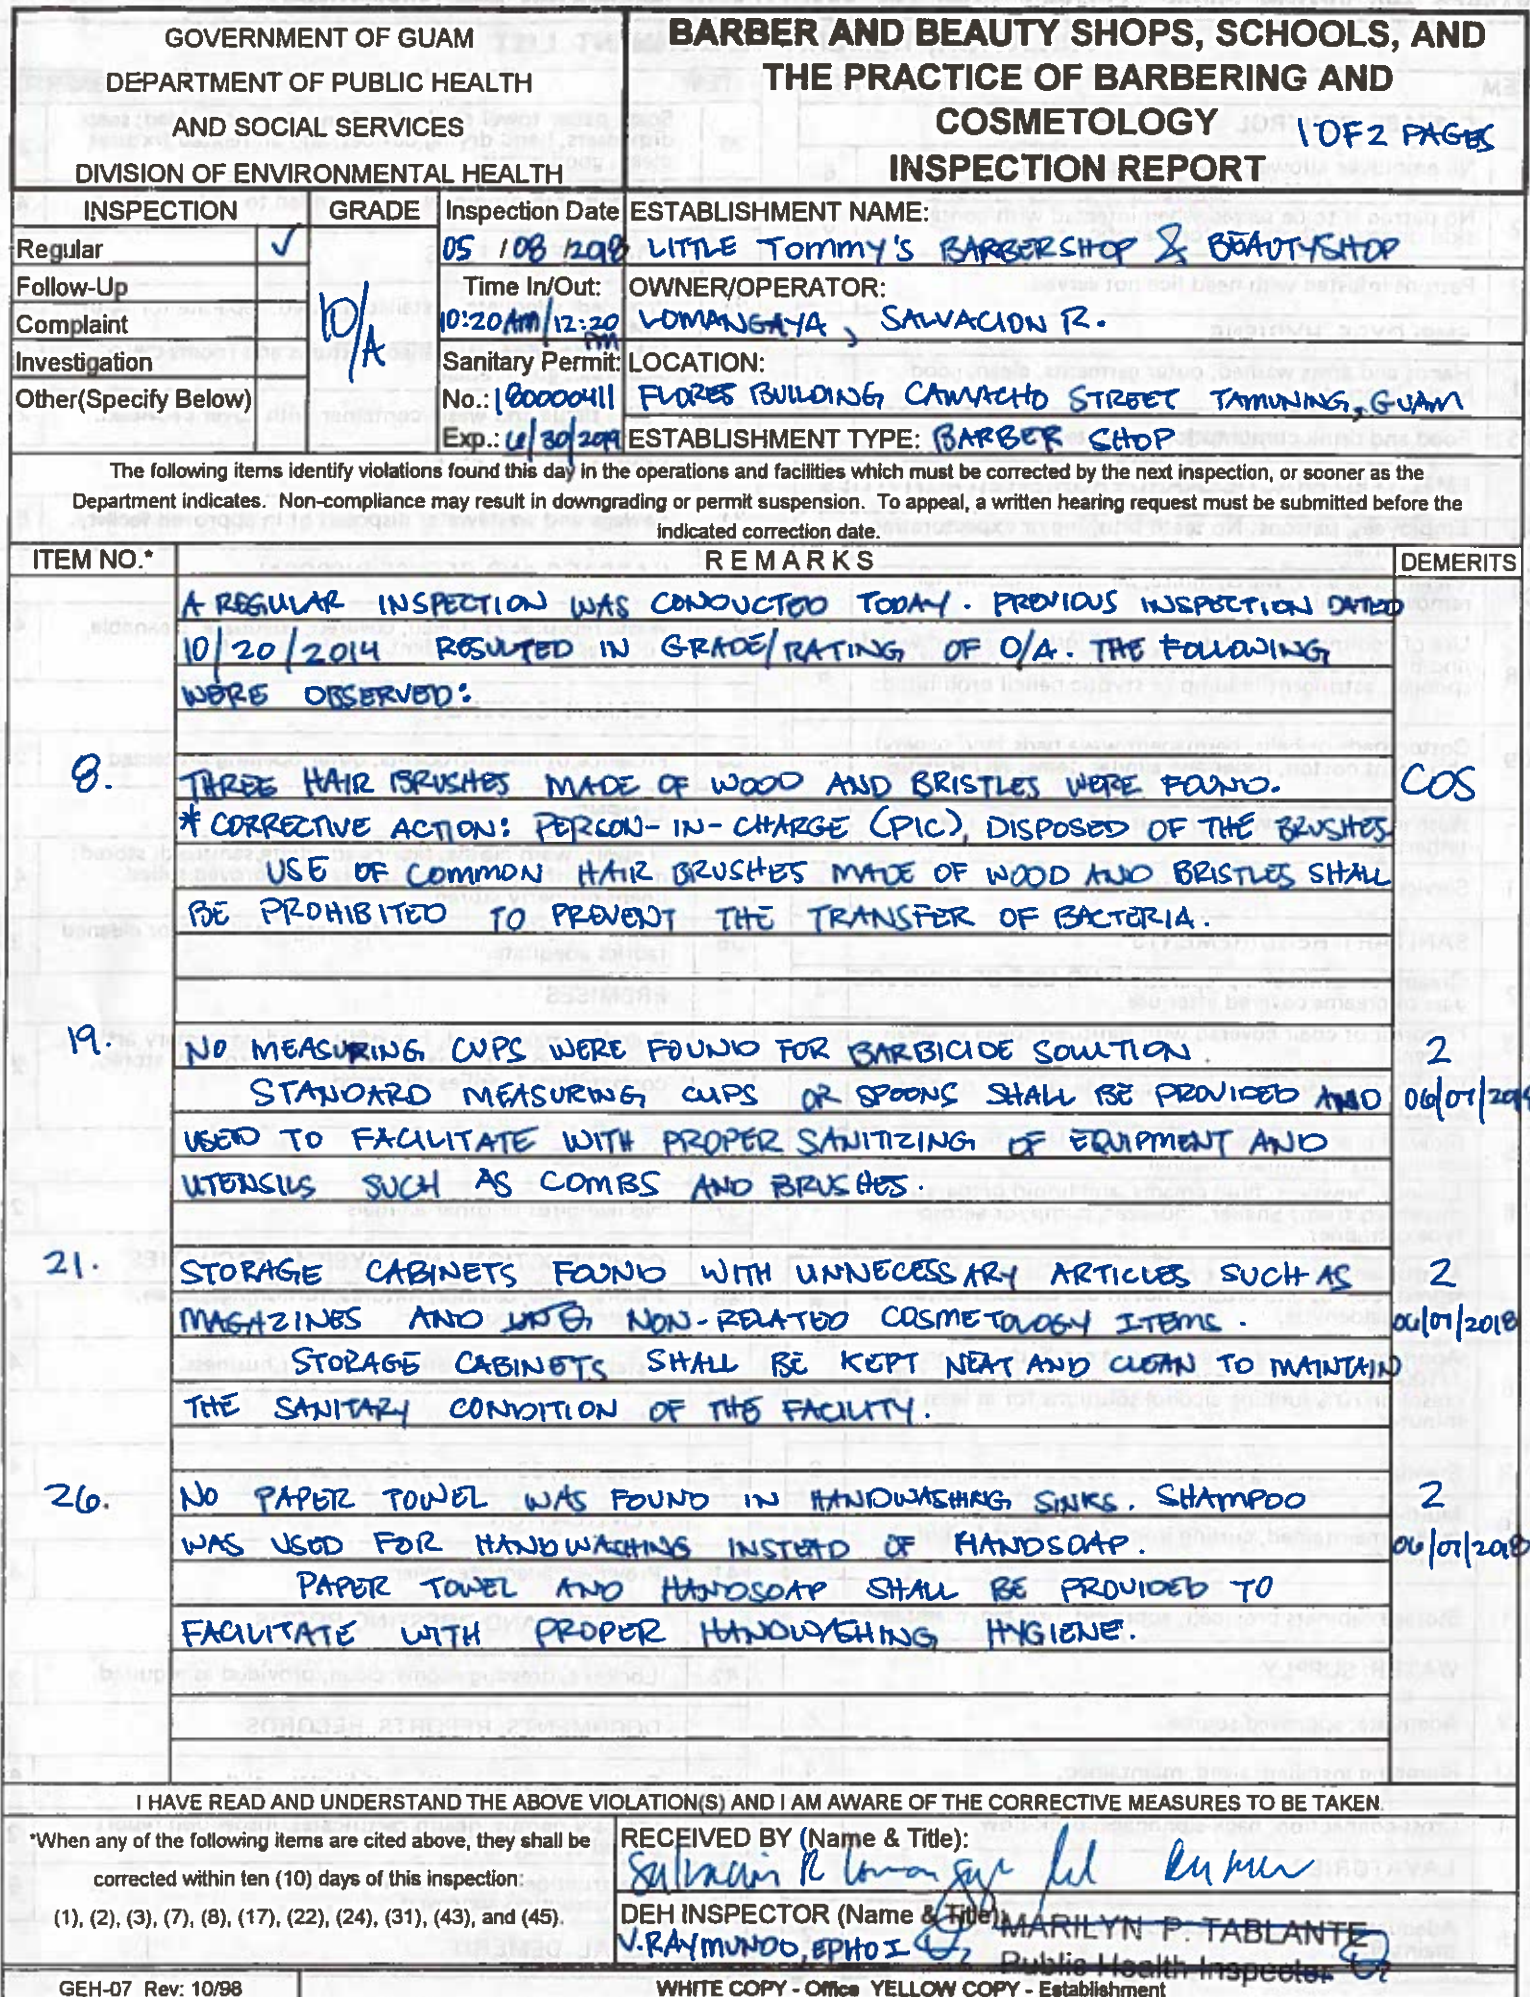 GOVERNMENT OF GUAM
DEPARTMENT OF PUBLIC HEALTH
AND SOCIAL SERVICES
DIVISION OF ENVIRONMENTAL HEALTH
BARBER AND BEAUTY SHOPS, SCHOOLS, AND
THE PRACTICE OF BARBERING AND
COSMETOLOGY 1 OF 2 PAGES
INSPECTION REPORT
INSPECTION GRADE Inspection Date ESTABLISHMENT NAME:
Regular ✓ 05 / 08 / 2018 LITTLE TOMMY'S BARBERSHOP & BEAUTYSHOP
Follow-Up Time In/Out: OWNER/OPERATOR:
Complaint 0/A 10:20 AM/12:20 PM LOMANGAYA, SALVACION R.
Investigation Sanitary Permit: LOCATION:
Other(Specify Below) No.: 180000411 FLORES BUILDING CAMACHO STREET TAMUNING, GUAM
Exp.: 6/30/2019 ESTABLISHMENT TYPE: BARBER SHOP
The following items identify violations found this day in the operations and facilities which must be corrected by the next inspection, or sooner as the
Department indicates. Non-compliance may result in downgrading or permit suspension. To appeal, a written hearing request must be submitted before the
indicated correction date.
ITEM NO.* REMARKS DEMERITS
A REGULAR INSPECTION WAS CONDUCTED TODAY. PREVIOUS INSPECTION DATED
10/20/2014 RESULTED IN GRADE/RATING OF 0/A. THE FOLLOWING
WERE OBSERVED:
8. THREE HAIR BRUSHES MADE OF WOOD AND BRISTLES WERE FOUND. COS
* CORRECTIVE ACTION: PERSON-IN-CHARGE (PIC), DISPOSED OF THE BRUSHES.
USE OF COMMON HAIR BRUSHES MADE OF WOOD AND BRISTLES SHALL
BE PROHIBITED TO PREVENT THE TRANSFER OF BACTERIA.
19. NO MEASURING CUPS WERE FOUND FOR BARBICIDE SOLUTION. 2
STANDARD MEASURING CUPS OR SPOONS SHALL BE PROVIDED AND 06/07/2018
USED TO FACILITATE WITH PROPER SANITIZING OF EQUIPMENT AND
UTENSILS SUCH AS COMBS AND BRUSHES.
21. STORAGE CABINETS FOUND WITH UNNECESSARY ARTICLES SUCH AS 2
MAGAZINES AND NON-RELATED COSMETOLOGY ITEMS. 06/07/2018
STORAGE CABINETS SHALL BE KEPT NEAT AND CLEAN TO MAINTAIN
THE SANITARY CONDITION OF THE FACILITY.
26. NO PAPER TOWEL WAS FOUND IN HANDWASHING SINKS. SHAMPOO 2
WAS USED FOR HANDWASHING INSTEAD OF HANDSOAP. 06/07/2018
PAPER TOWEL AND HANDSOAP SHALL BE PROVIDED TO
FACILITATE WITH PROPER HANDWASHING HYGIENE.
I HAVE READ AND UNDERSTAND THE ABOVE VIOLATION(S) AND I AM AWARE OF THE CORRECTIVE MEASURES TO BE TAKEN.
*When any of the following items are cited above, they shall be
corrected within ten (10) days of this inspection:
(1), (2), (3), (7), (8), (17), (22), (24), (31), (43), and (45).
RECEIVED BY (Name & Title):
DEH INSPECTOR (Name & Title): MARILYN P. TABLANTE
V. RAYMUNDO, EPHO I Public Health Inspector
GEH-07 Rev: 10/98 WHITE COPY - Office YELLOW COPY - Establishment